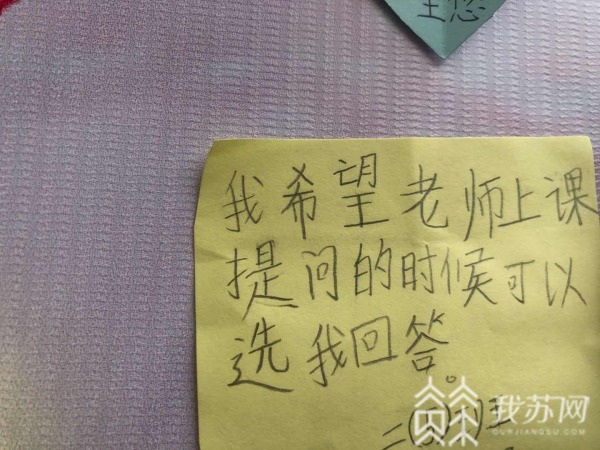 我希望老师上课
提问的时候可以
选我回答。
我苏网
OURJIANGSU.COM